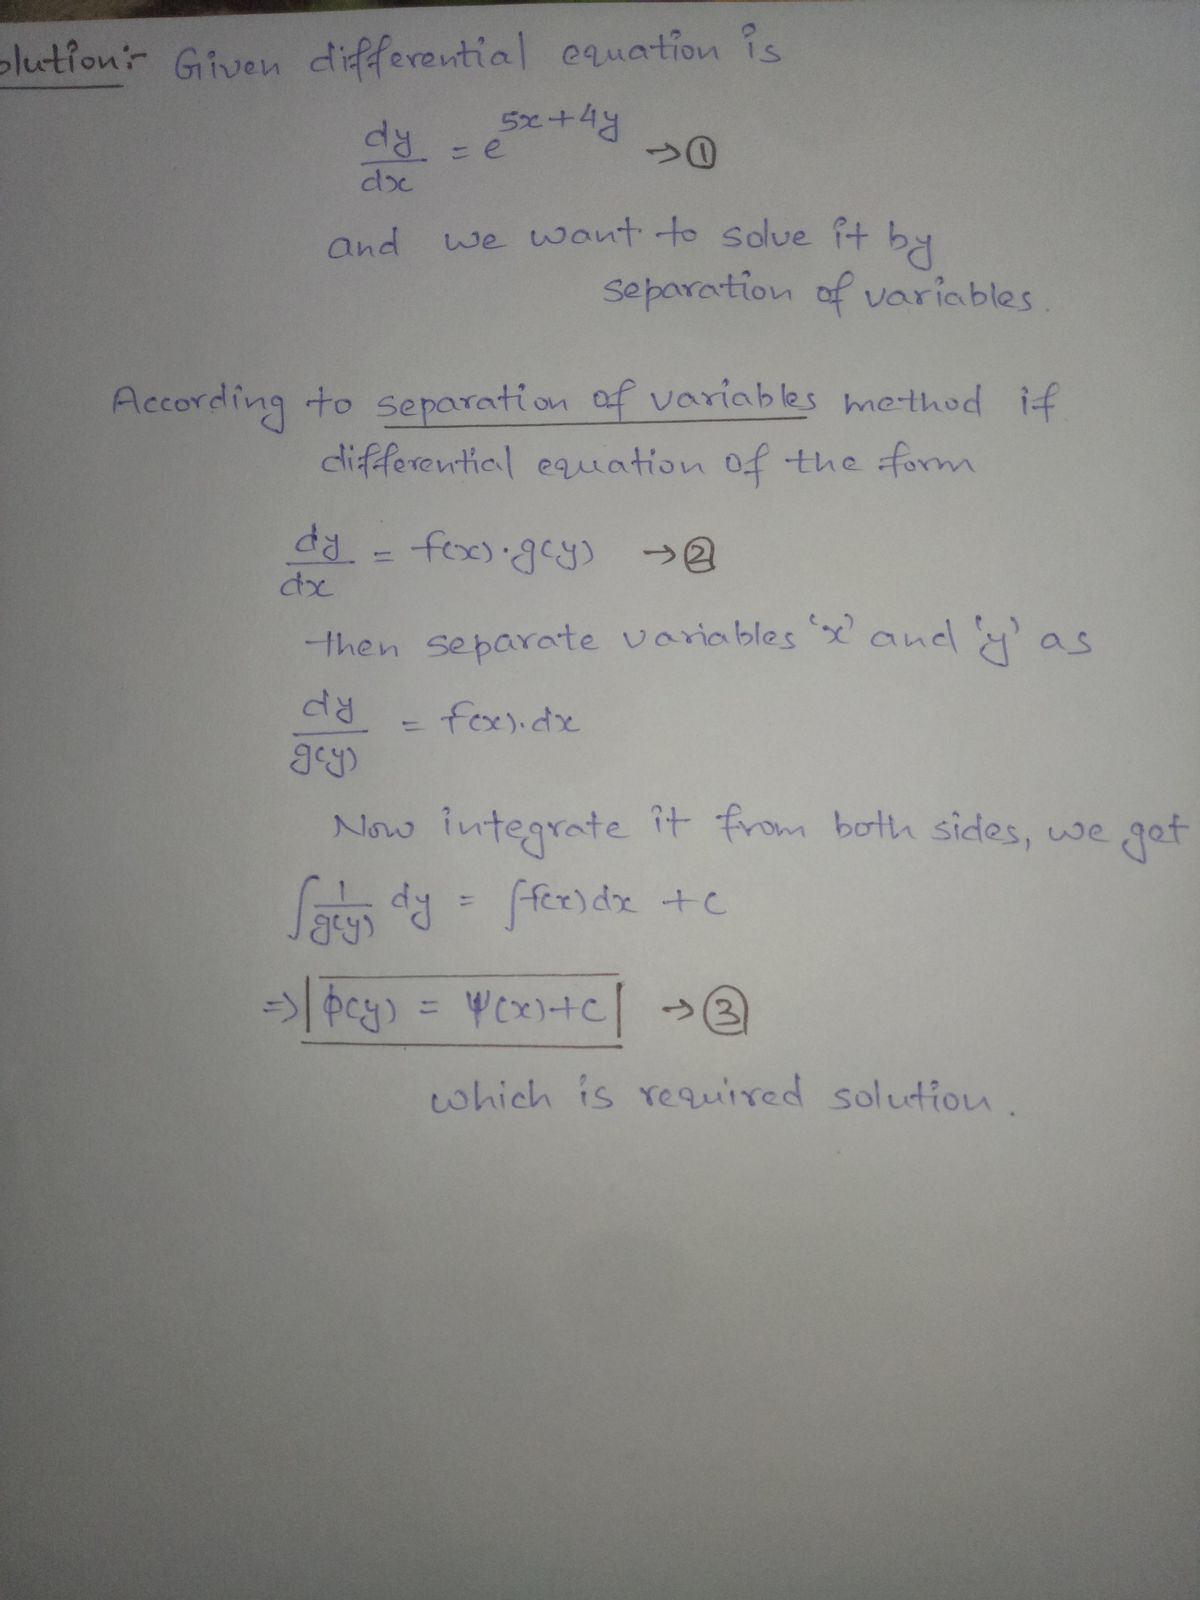 olution:- Given differential equation is
dy/dx = e^(5x+4y) → ①
and we want to solve it by
separation of variables.
According to separation of variables method if
differential equation of the form
dy/dx = f(x)·g(y) → ②
then separate variables 'x' and 'y' as
dy/g(y) = f(x).dx
Now integrate it from both sides, we get
∫ 1/g(y) dy = ∫f(x)dx + c
⇒ ϕ(y) = Ψ(x)+c → ③
which is required solution.